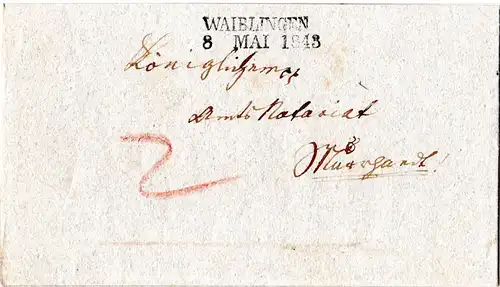 WAIBLINGEN
8 MAI 1843
Königlichem
Amts Notariat
2
Murrhardt!